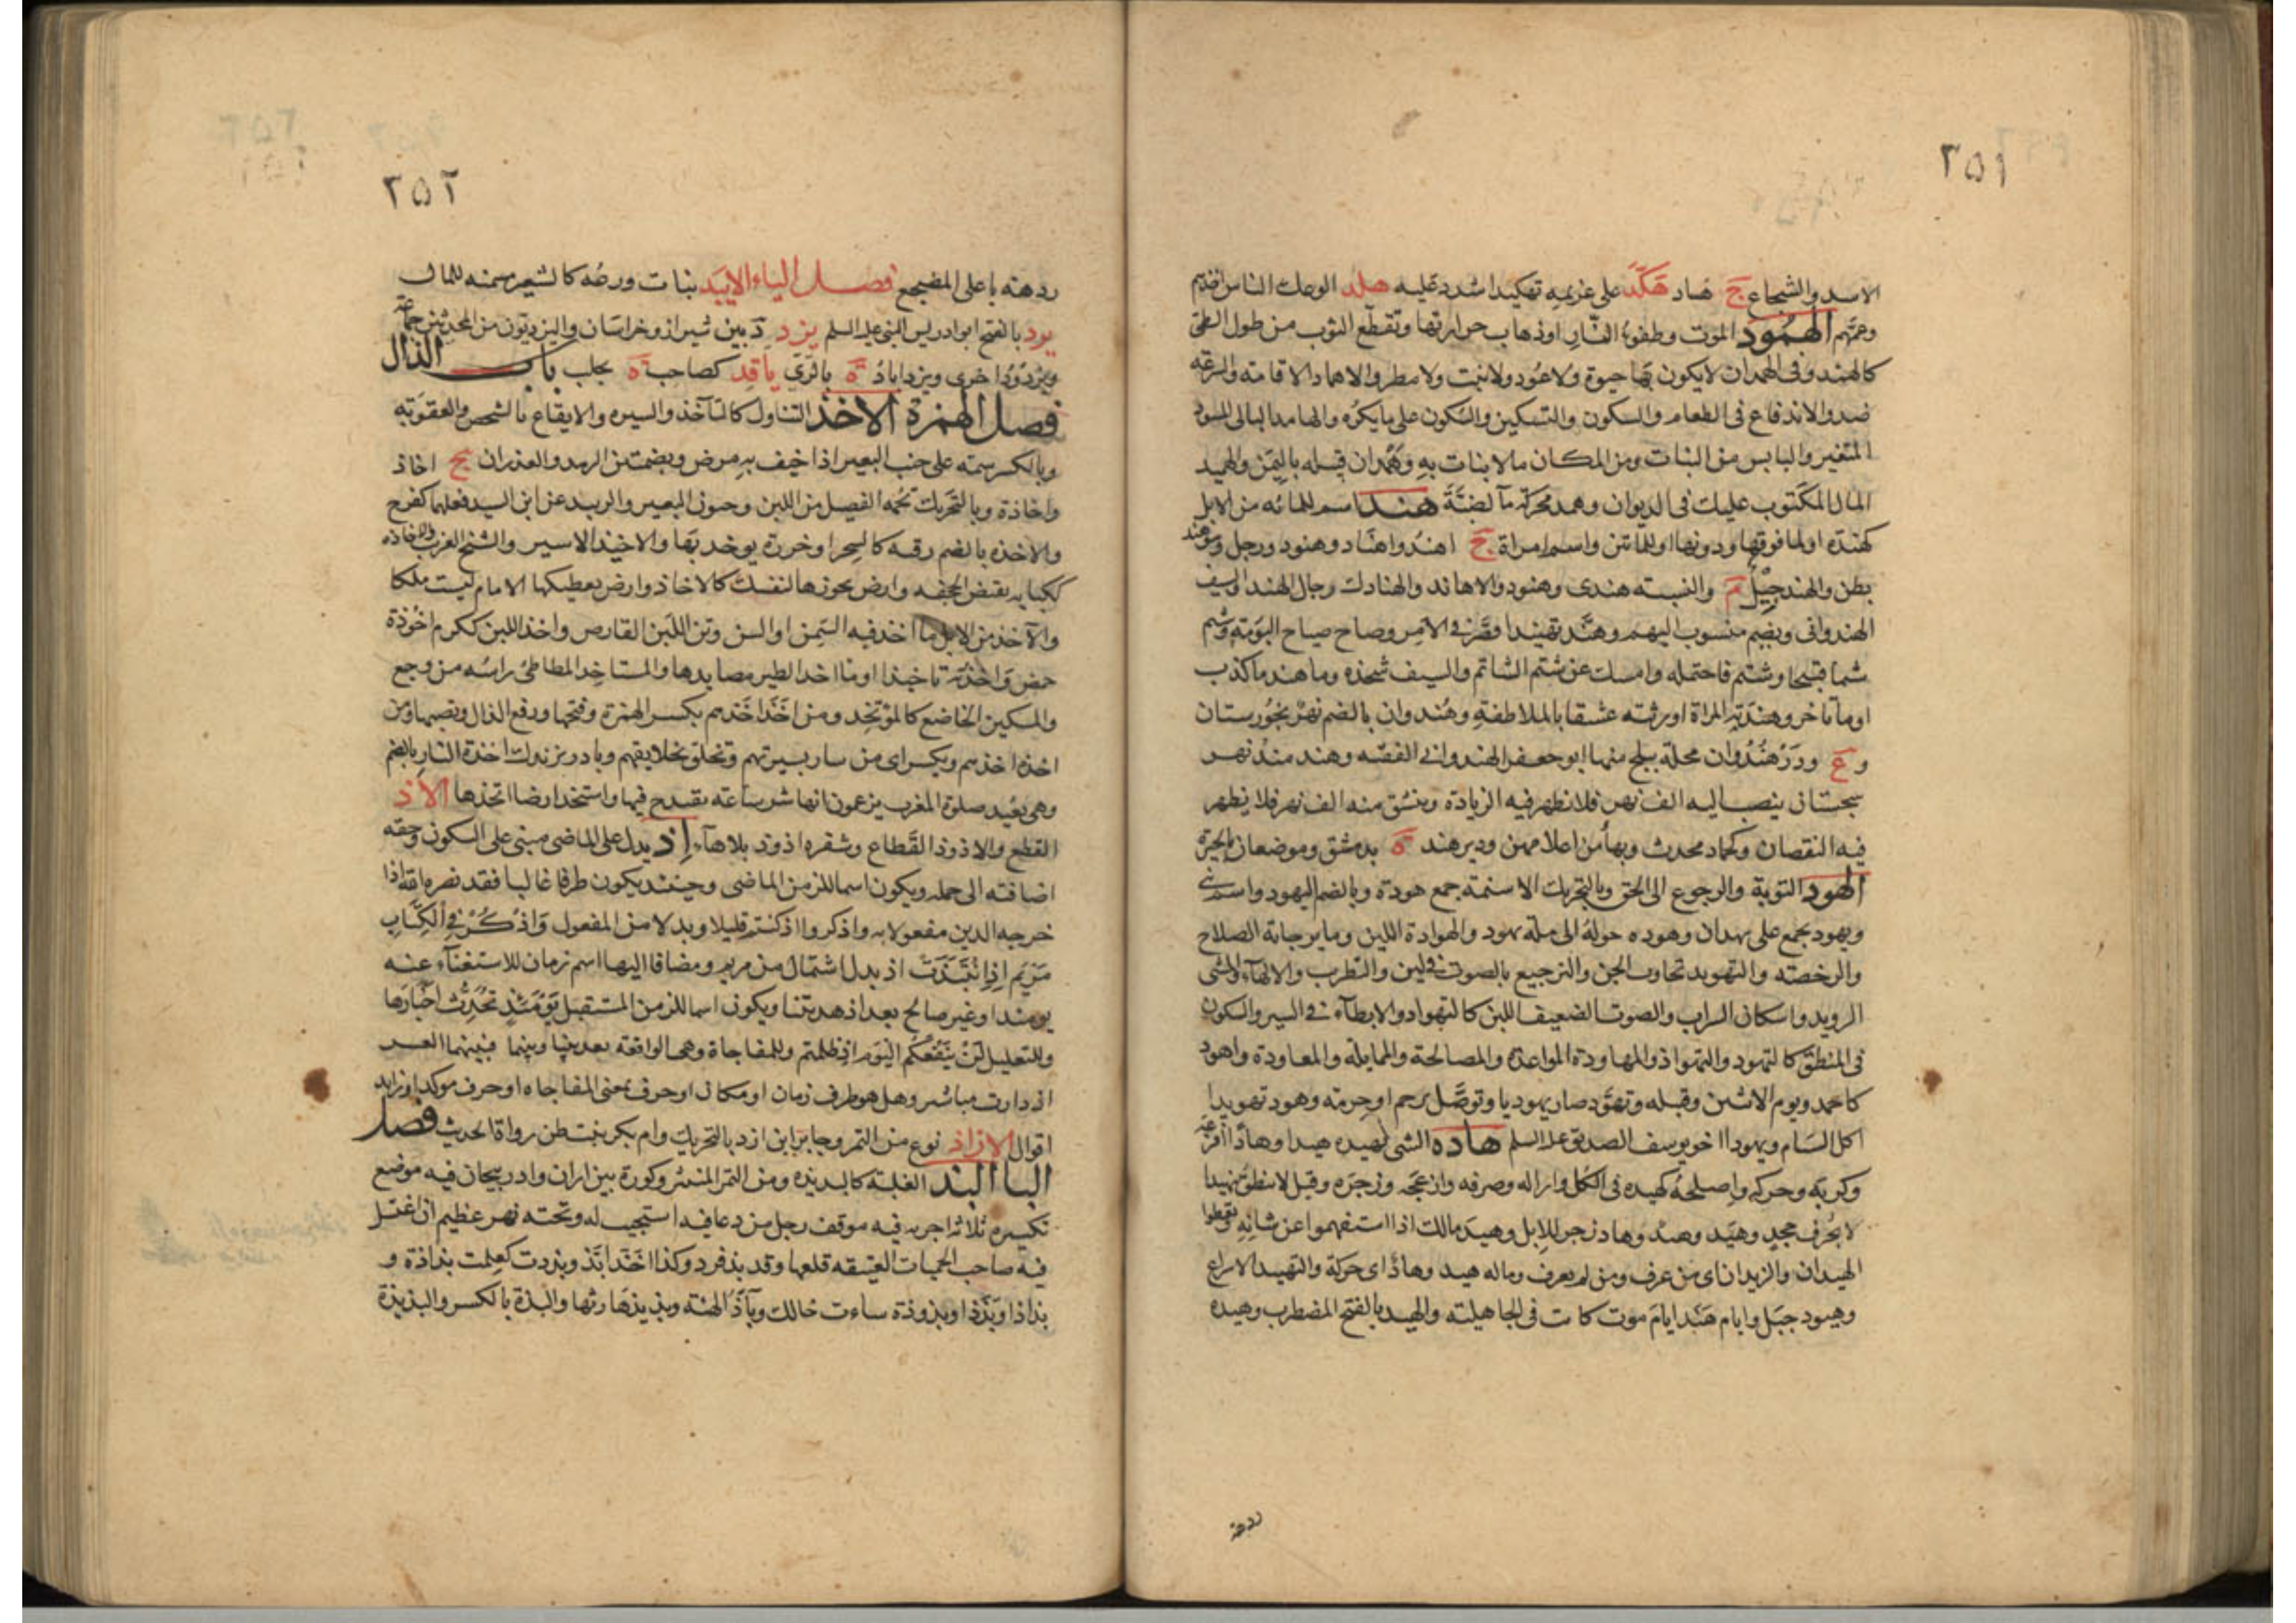 ٢٥١
الاسد والشجاع ج هَاد هَكَّدَ على غريمه تهكيدا شدد عليه هلد الوعك الناس اخذهم
وعمّهم الهُمُود الموت وطفوء النَّار او ذهاب حرارتها وتقطّع الثوب من طول الطىّ
كالهمد وفى الهمدان لا يكون بها حيوة ولا عُود ولا نبت ولا مطر والاهماد الاقامة والسرعة
ضد والاندفاع فى الطعام والسكون والتسكين والسكون على ما يكره والهامد البالى المسود
المتغير واليابس من النبات ومن المكان ما لا نبات به وهَمْدان قبيله باليَمَن والهميد
المال المكتوب عليك فى الديوان وهمد محركة مآ لضبّة هند اسم للمائه من الابل
كهنده او لما فوقها ودونها او للمائتين واسم امراة ج اهنُد واهنَاد وهنود ورجل وبنو هند
بطن والهند جِيل م والنسبته هندى وهنود والاهاند والهنادك رجال الهند والسيف
الهندوانى ويضم منسوب اليهم وهنَّد تهنيدا قصَّر فى الامر وصاح صياح البومة وشتم
شتما قبيحا وشتم فاحتمله وامسك عن شتم الشاتم والسيف شحذه وما هند ما كذب
او ما تاخر وهنّدته المراة اورثته عشقا بالملاطفة وهُندوان بالضم نهر بخورستان
و ع ودَرْهُنْدُوان محلة ببلخ منها ابو جعفر الهندوانى الفقيه وهند مند نهر
بسجستان ينصب اليه الف نهر فلا تظهر فيه الزيادة وينشق منه الف نهر فلا يظهر
فيه النقصان وكحماد محدث وبهاء من اعلامهن ودير هند ة بدمشق وموضعان بالحيرة
الهود التوبة والرجوع الى الحق وبالتحريك الاسنمة جمع هودة وبالضم اليهود واسم نبى
ويهود يجمع على يهدان وهوده حولهُ الى ملة يهود والهوادة اللين وما يرجا به الصلاح
والرخصته والتهويد تجاوب الجن والترجيع بالصوت فى لين والتطرب والالهآء والمشى
الرويد واسكان الشراب والصوت الضعيف اللين كالتهواد والابطآء فى السير والسكون
فى المنطق كالتهود والتهواد والمهاودة المواعدة والمصالحة والممايلة والمعاودة واهود
كاحمد ويوم الاثنين وقبيله وتهوَّد صار يهوديا وتوصَّل برحم او حرمة وهود تهويدا
اكل السَنام ويهودا اخو يوسف الصديق عليه السلم هاده الشى يهيده هيدا وهادًا افزعه
وكربه وحركه واصلحهُ كهيده فى الكل وازاله وصرفه وازعجَه وزجرَه وقيل لا ينطق بيهيد
لا بحُرف جحد وهَيَد وهِيد وهاد زجر للابل وهيد مالك اذا استفهموا عن شانه
الهيدان والزيدان اى من عرف ومن لم يعرف وماله هيد وهادٌ اى حركة والتهييد الاسراع
وهيود جبَل وايام هَيْد ايام موت كانت فى الجاهلية والهيد بالفتح المضطرب وهيده
ردهة
٢٥٢
ردهة باعلى المضجع فصل الياء الايبَد نبات ورقه كالشعير مسمنه للمال
يرد بالفتح ابو ادريس النبى عليه السلم يزد د بين شيراز وخراسان واليزديّون من المحدثين جماعة
ويزدُودُ اخرى ويزداباد ة بالرَّى ياقد كصاحب ة بحلب باب الذال
فصل الهمزة الاخذ التناول كالتآخذ والسيره والايقاع بالشخص والعقوبَة
وبالكسر سمته على جنب البعير اذا خيف به مرض وبضمتين الرمد والغدران ج اخاذ
واخاذة وبالتحريك تخمه الفصيل من اللبن وجنون البعير والرمد عن ابن السيد فعلهما كفرح
والاخذه بالضم رقيه كالسحر او خرزة يوخذ بها والاخيذ الاسير والشيخ الغريب والاخاذه
ككتابه مقبض الحجفه وارض تحوزها لنفسك كالاخاذ وارض يعطيكها الامام ليست ملكا
والآخذ من الابل ما اخذ فيه السِّمن او السن ومن اللَّبن القارص واخذ اللبن ككرم اخُوذة
حمض واخذته تاخيذا او ما اخذ الطير مصايدها والمستاخِذ المطاطئ راسه من وجع
والمسكين الخاضع كالمؤتخِذ ومن اخَذَ اخَذهم بكسر الهمزة وفتحها ورفع الذال ونصبها ومن
اخذه اخذهم ويكسر اى من سار بسيرتهم وتخلق بخلايقهم وبادر بزندك اخذة النار بالضم
وهى بعُيد صلوة المغرب يزعمون انها شر ساعة يقتدح فيها واستخذ ارضا اتخذها الاذ
القطع والاذوذ القَّطاع وشفره اذوذ بلا هآء إذ يدل على الماضى مبنى على السكون وحقه
اضافته الى جمله ويكون اسما للزمن الماضى وحينئذ يكون ظرفا غالبا فقد نصره الله اذ
اخرجه الذين مفعولا به واذكروا اذ كنتم قليلا وبدلا من المفعول وَاذْكُرْ فِى الْكِتَابِ
مَرْيَمَ إِذِ انْتَبَذَتْ اذ بدل اشتمال من مريم ومضافا اليها اسم زمان للاستغنآء عنه
يومئذ او غير صالح بعد اذ هديتنا ويكون اسما للزمن المستقبل يَوْمَئِذٍ تُحَدِّثُ اخْبَارَها
وللتعليل لَنْ يَنْفَعَكُم الْيَوْمَ اذ ظلمتم وللمفاجاة وهى الواقعة بعد بينا وبينما فبينما العسر
اذ دارت مياسير وهل هو ظرف زمان او مكان او حرف بمعنى المفاجاه او حرف موكد او زايد
اقوال الازاذ نوع من التمر وجابر ابن ازد بالتحريك وام بكر بنت ازد من رواة الحديث فصل
البا البذ الغلبة كالبذيذه ومن التمر المنتثر وكورة بين اران واذربيجان فيه موضع
تكسيره ثلاثة اجربه فيه موقف رجل من دعا فيه استجيب له وتحته نهر عظيم ان اغتسل
فيه صاحب الحميات العتيقه قلعها وقد بذ فرد وكذا اخَذَ ابَّذ وبذذت كعلمت بذاذة و
بذاذا وبَذَذا وبذوذة ساءت حالك وبآذّ الهئة وبذيذهَا رثها والبذة بالكسر والبذيذة